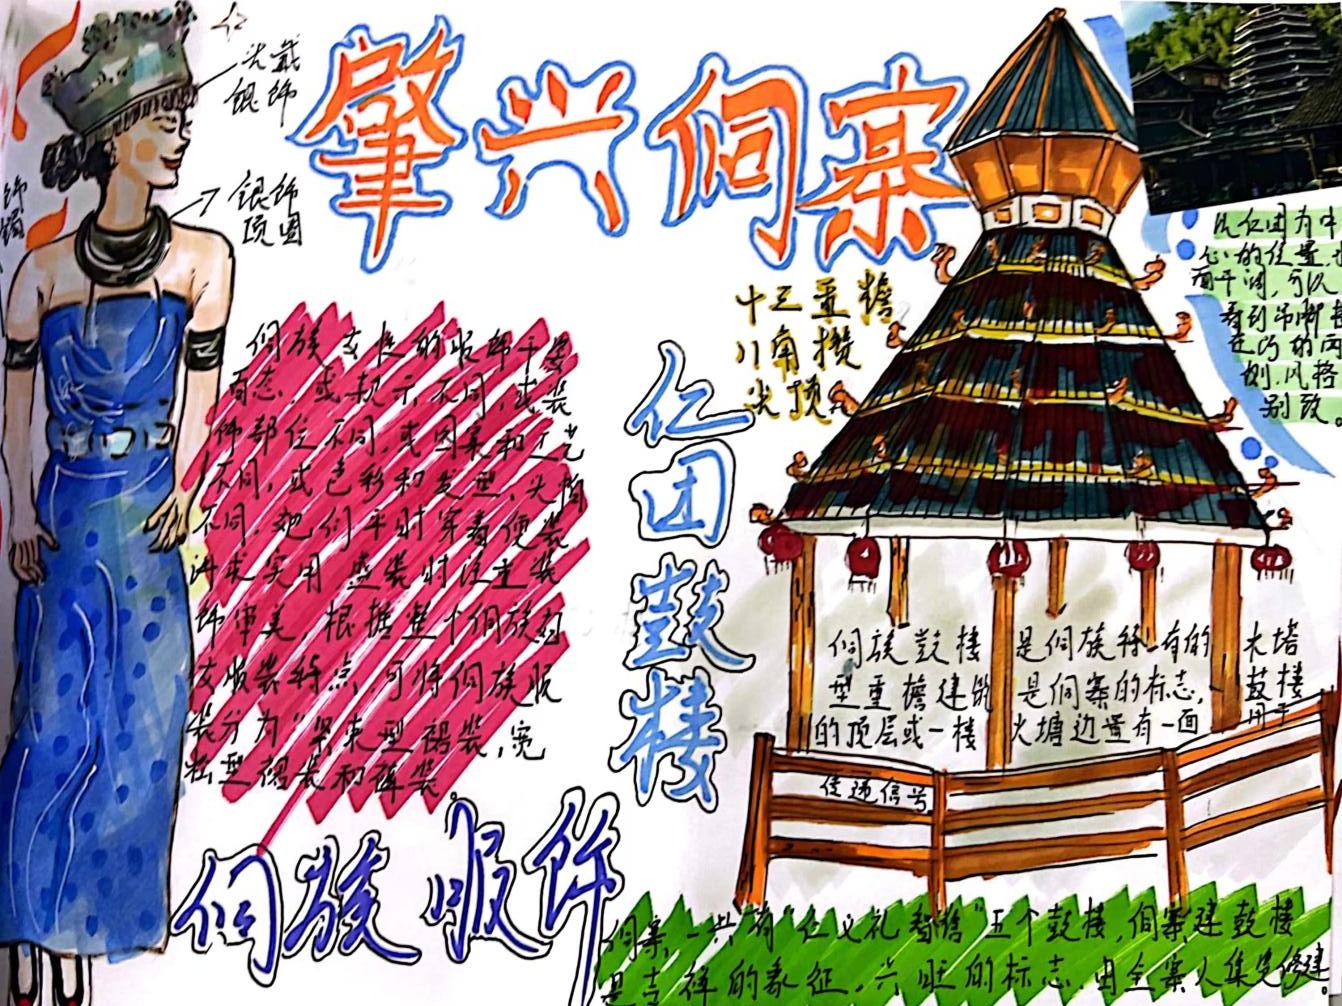 肇兴侗寨
头戴
银饰
银饰
项圈
饰
镯
侗族女性的服饰千姿
百态，或款示不同，或装
饰部位不同，或图案和工艺
不同，或色彩和发型、头帕
不同，她们平时穿着便装
讲求实用 盛装时注重装
饰审美，根据整个侗族妇
女服装特点，可将侗族服
装分为“紧束型裙装，宽
松型裙装和裤装。
侗族服饰
十三重檐
八角攒
尖顶
仁团鼓楼
以仁团为中
心的位置，
面干阔，可以
看到吊脚楼
建巧的两
侧，风格
别致。
侗族鼓楼 是侗族特有的 木塔
型重檐建筑 是侗寨的标志， 鼓楼
的顶层或一楼 火塘边置有一面 用于
传递信号
侗寨一共有“仁义礼智信”五个鼓楼，侗寨建鼓楼
是吉祥的象征，兴旺的标志，由全寨人集资修建。